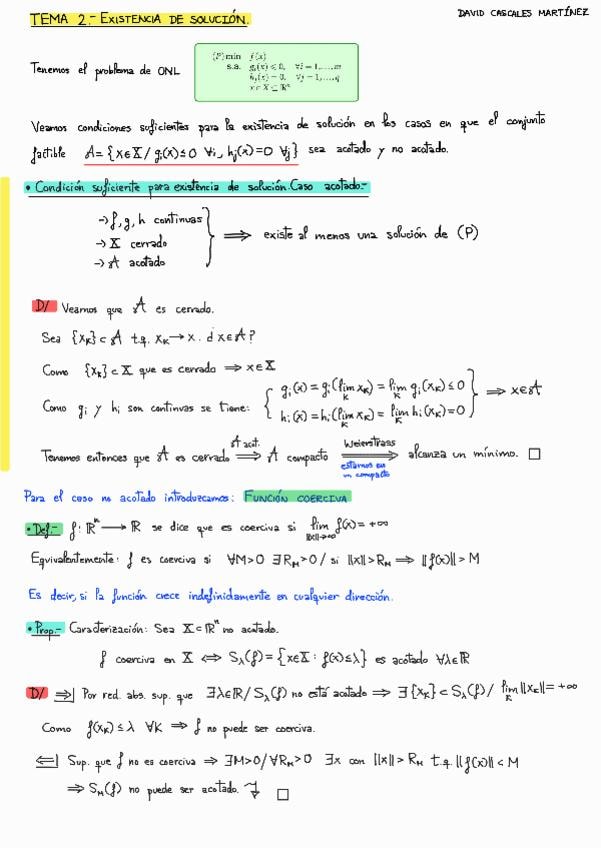 TEMA 2.- EXISTENCIA DE SOLUCIÓN.
DAVID CASCALES MARTÍNEZ
Tenemos el problema de ONL
(P) min f(x)
s.a. gᵢ(x) ≤ 0, ∀i = 1,...,m
hⱼ(x) = 0, ∀j = 1,...,q
x ∈ X ⊆ ℝⁿ
Veamos condiciones suficientes para la existencia de solución en los casos en que el conjunto
factible A = {x∈X / gᵢ(x) ≤ 0 ∀i, hⱼ(x) = 0 ∀j} sea acotado y no acotado.
• Condición suficiente para existencia de solución. Caso acotado.-
→ f, g, h continuas
→ X cerrado
→ A acotado
⟹ existe al menos una solución de (P)
D/ Veamos que A es cerrado.
Sea {x_K} ⊂ A t.q. x_K → x. ¿x∈A?
Como {x_K} ⊂ X que es cerrado ⟹ x∈X
Como gᵢ y hᵢ son continvas se tiene:
gᵢ(x) = gᵢ(lim_K x_K) = lim_K gᵢ(x_K) ≤ 0
hᵢ(x) = hᵢ(lim_K x_K) = lim_K hᵢ(x_K) = 0
⟹ x∈A
Tenemos entonces que A es cerrado ⟹ A compacto ⟹ alcanza un mínimo. □
A acot.
Weierstrass
estamos en
un compacto
Para el caso no acotado introduzcamos: FUNCIÓN COERCIVA
• Def.- f: ℝⁿ ⟶ ℝ se dice que es coerciva si lim_{||x||→∞} f(x) = +∞
Equivalentemente: f es coerciva si ∀M>0 ∃R_M>0 / si ||x|| > R_M ⟹ ||f(x)|| > M
Es decir, si la función crece indefinidamente en cualquier dirección.
• Prop.- Caracterización: Sea X ⊂ ℝⁿ no acotado.
f coerciva en X ⟺ S_λ(f) = {x∈X : f(x) ≤ λ} es acotado ∀λ∈ℝ
D/ ⟹| Por red. abs. sup. que ∃λ∈ℝ / S_λ(f) no está acotado ⟹ ∃{x_K} ⊂ S_λ(f) / lim_K ||x_K|| = +∞
Como f(x_K) ≤ λ ∀K ⟹ f no puede ser coerciva.
⟸| Sup. que f no es coerciva ⟹ ∃M>0 / ∀R_M>0 ∃x con ||x|| > R_M t.q. ||f(x)|| < M
⟹ S_M(f) no puede ser acotado. □